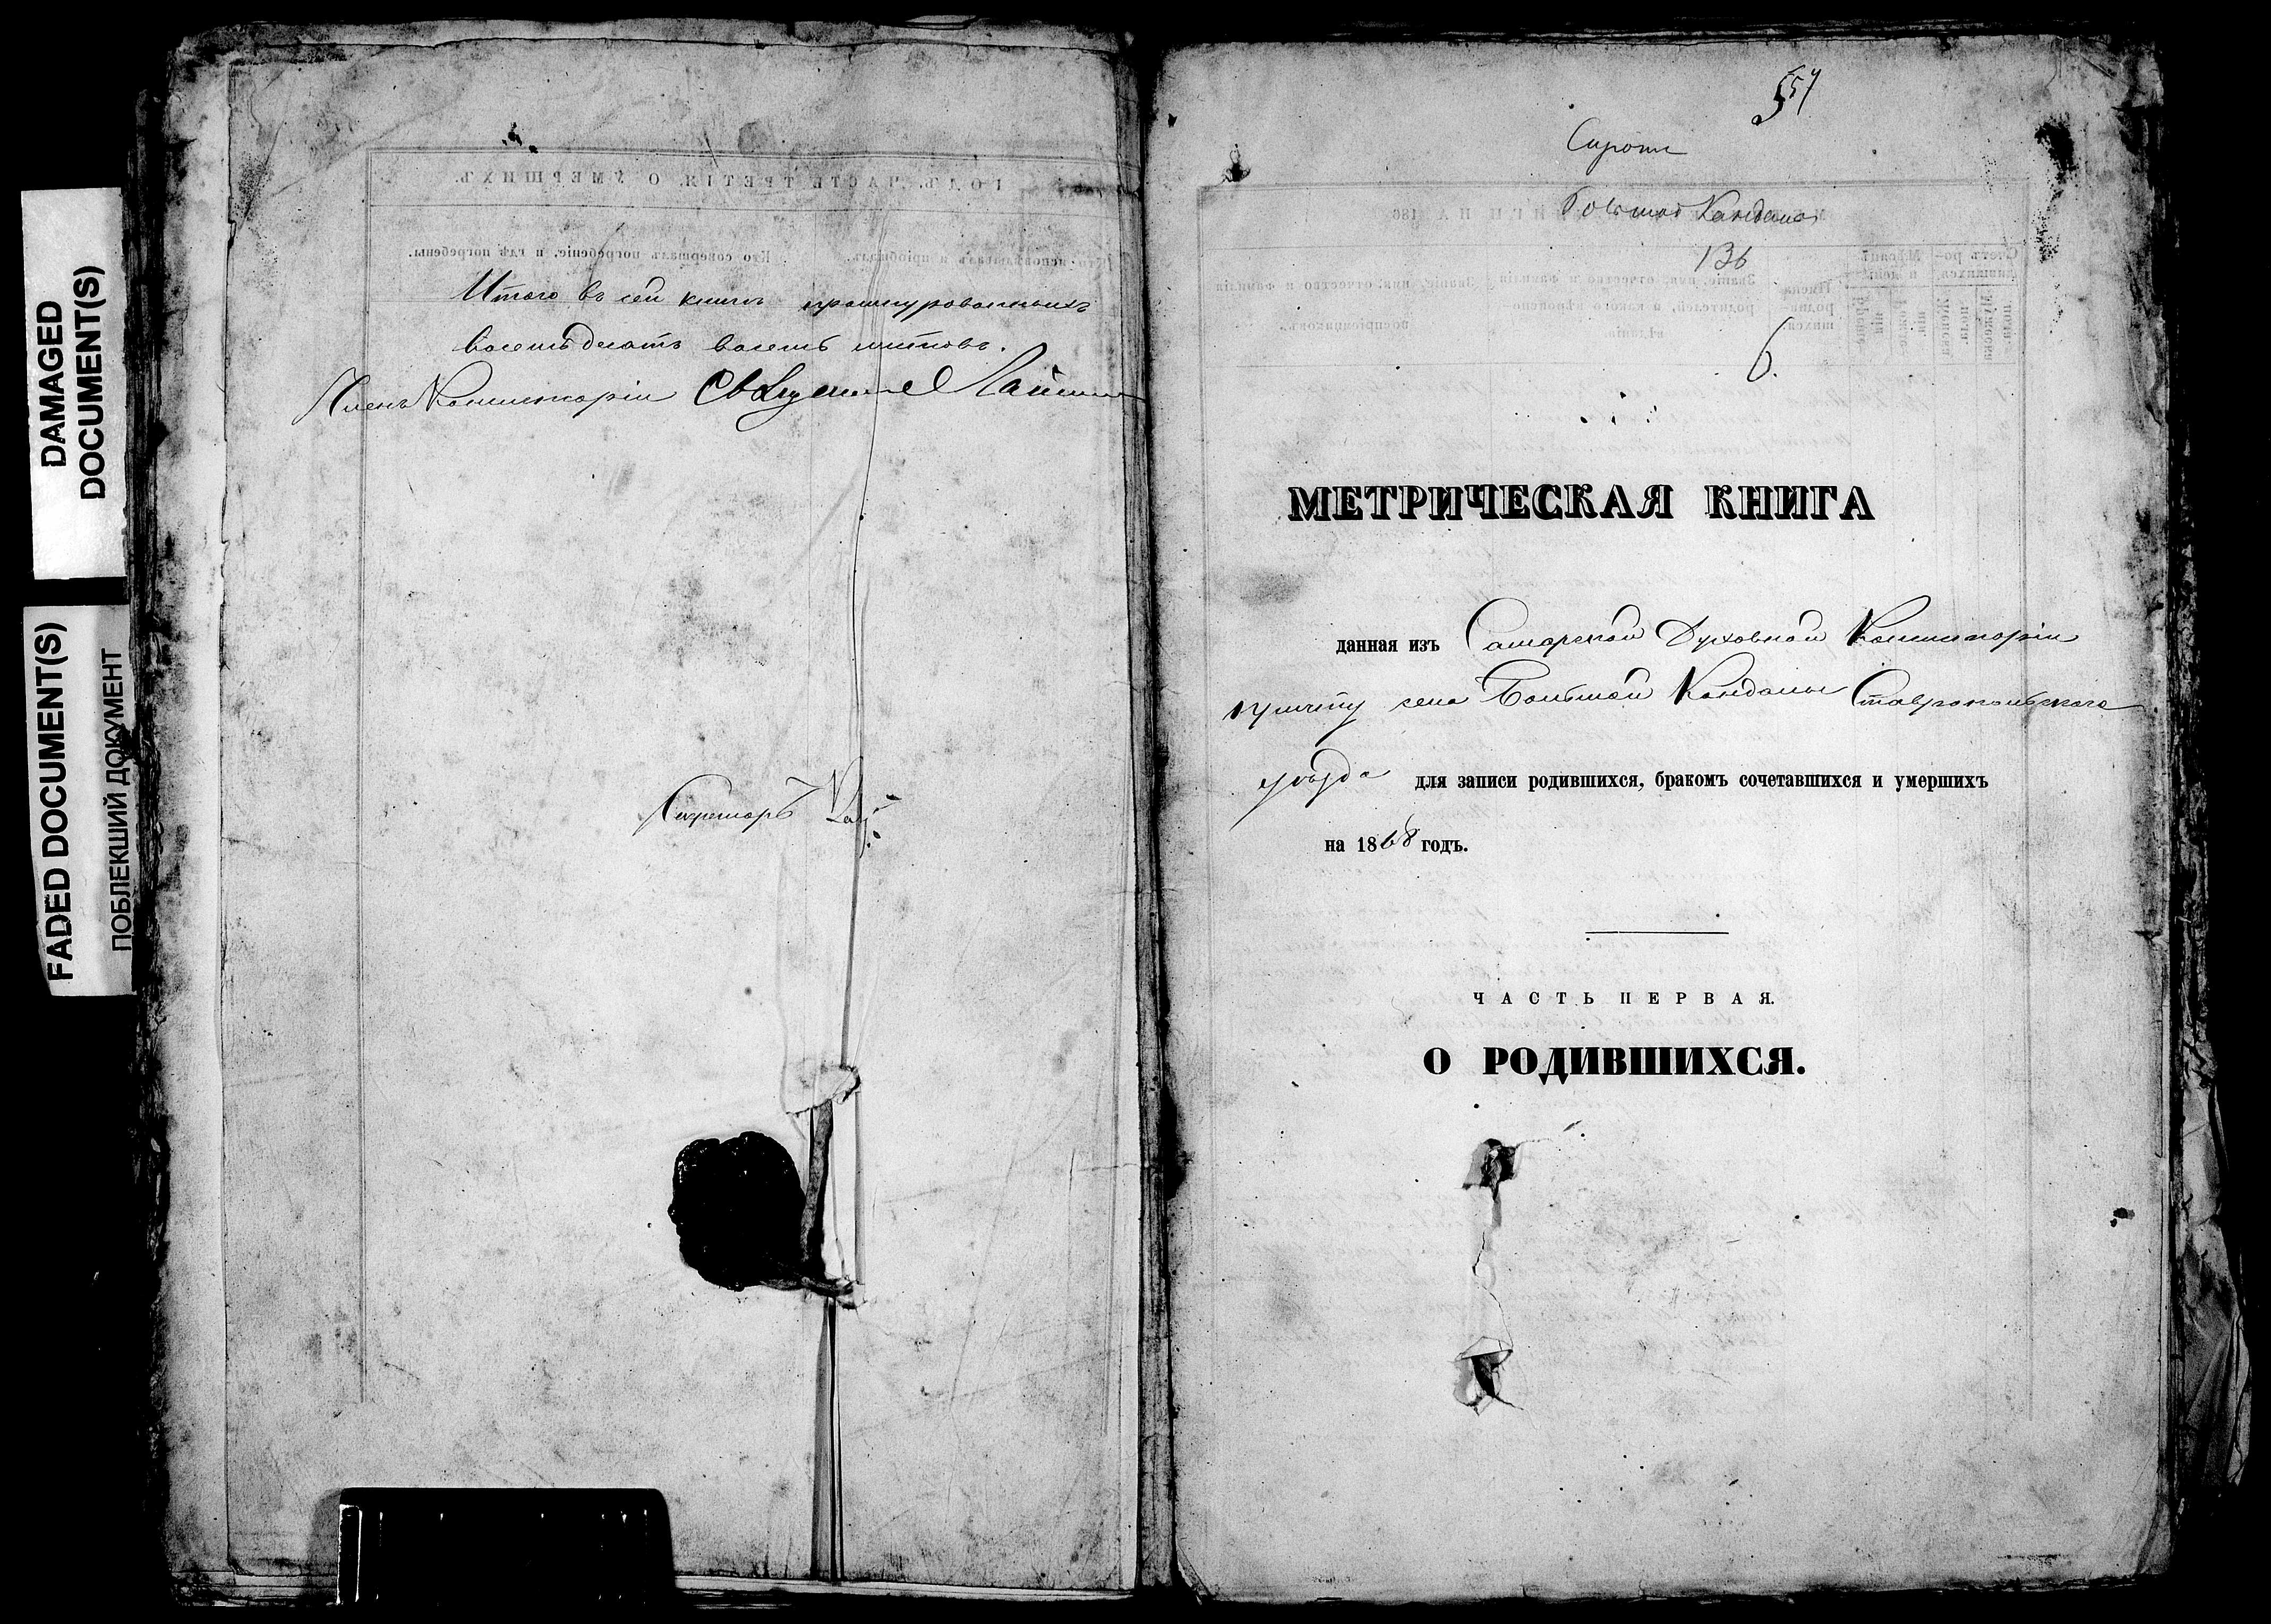 DAMAGED
DOCUMENT(S)
FADED DOCUMENT(S)
ПОБЛЕКШИЙ ДОКУМЕНТ
Итого въ сей книгѣ прошнурованныхъ
восемьдесятъ восемь листовъ.
Членъ Консисторіи Священникъ
Секретарь
Большая Кандала
136
6.
МЕТРИЧЕСКАЯ КНИГА
данная изъ Самарской Духовной Консисторіи
причту села Большой Кандалы Ставропольского
уѣзда для записи родившихся, бракомъ сочетавшихся и умершихъ
на 1868 годъ.
ЧАСТЬ ПЕРВАЯ.
О РОДИВШИХСЯ.